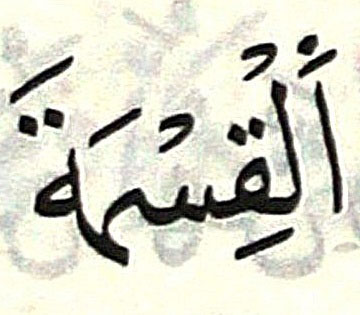 اَلْقِسْمَةَ